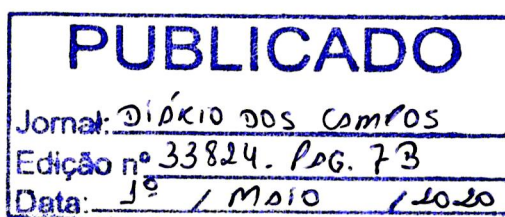 PUBLICADO
Jornal: DIÁRIO DOS CAMPOS
Edição nº 33824. PAG. 7B
Data: 1º / MAIO / 2020